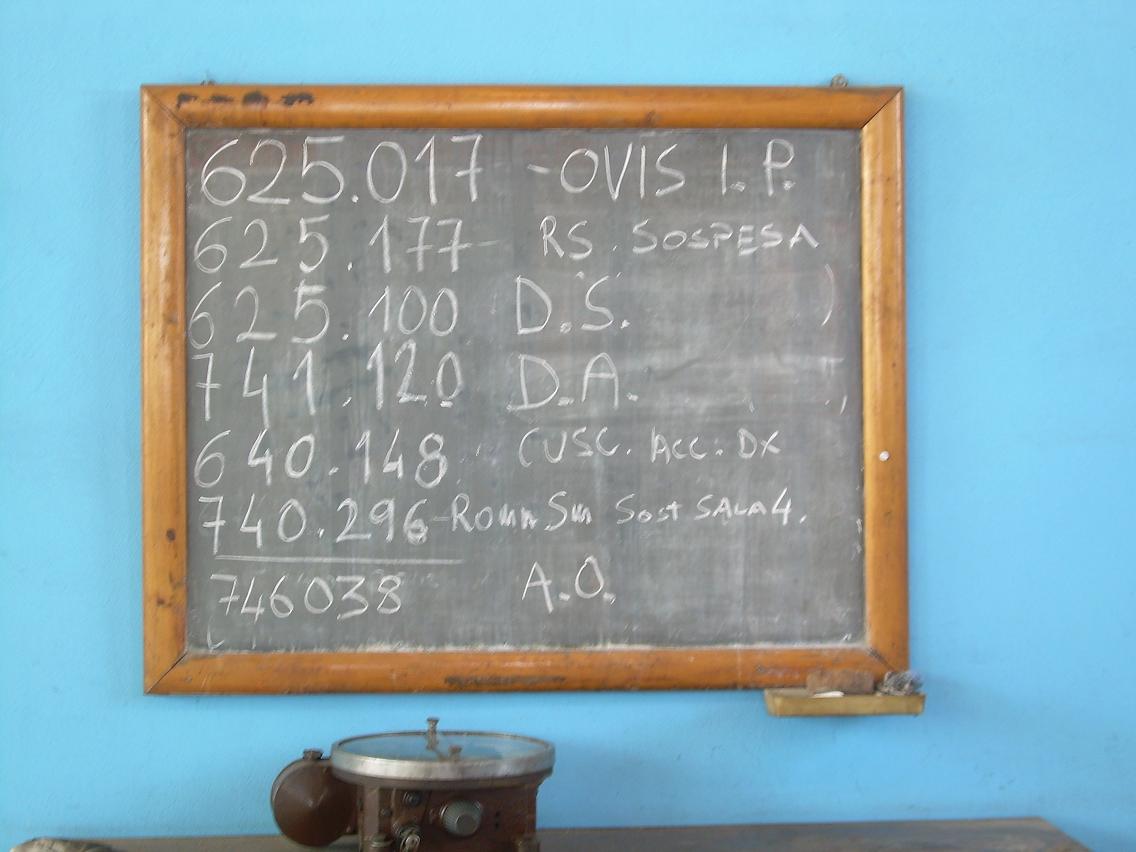 625.017 - OVIS I.P.
625.177 - RS. SOSPESA
625.100 D.S.
741.120 D.A.
640.148. CUSC. ACC. DX
740.296 - Sost SALA 4.
746038 A.O.